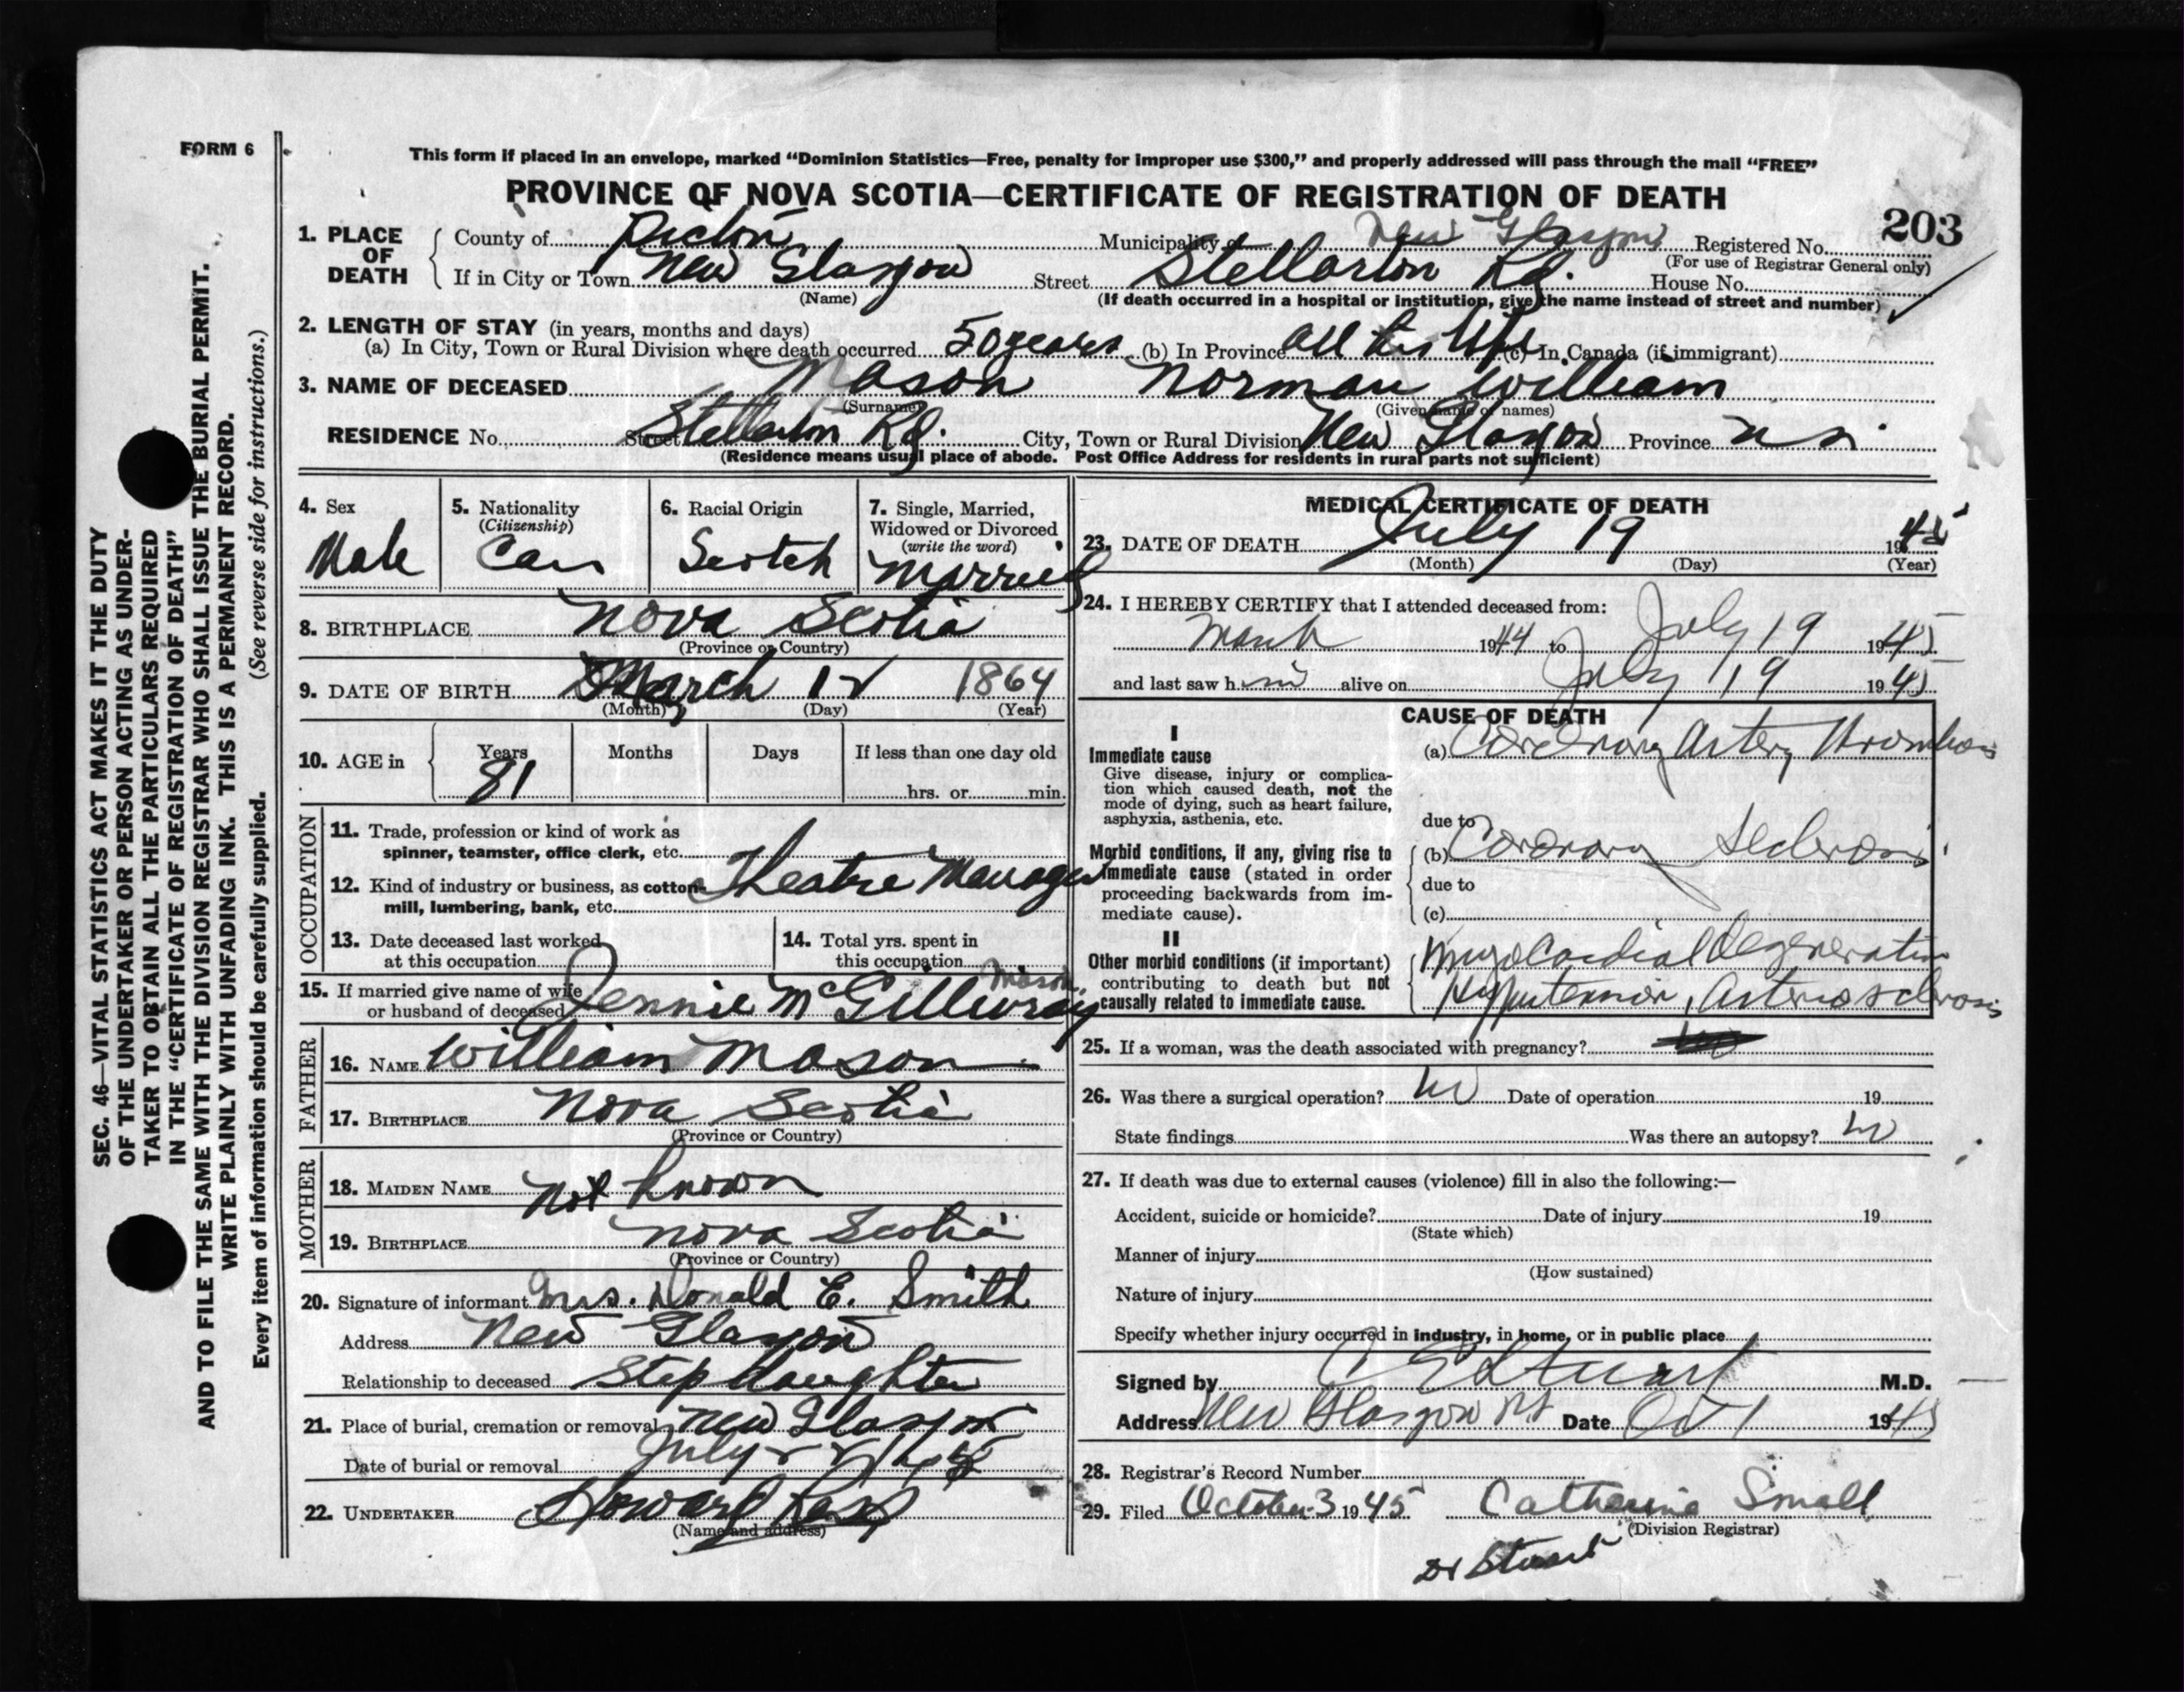 FORM 6
This form if placed in an envelope, marked “Dominion Statistics—Free, penalty for improper use $300,” and properly addressed will pass through the mail “FREE”
PROVINCE OF NOVA SCOTIA—CERTIFICATE OF REGISTRATION OF DEATH
203
1. PLACE OF DEATH
County of Pictou Municipality of New Glasgow Registered No.
(For use of Registrar General only)
If in City or Town New Glasgow Street Stellarton Rd. House No.
(Name) (If death occurred in a hospital or institution, give the name instead of street and number)
2. LENGTH OF STAY (in years, months and days)
(a) In City, Town or Rural Division where death occurred 50 years (b) In Province all his life (c) In Canada (if immigrant)
3. NAME OF DECEASED Mason Norman William
(Surname) (Given name or names)
RESIDENCE No. Street Stellarton Rd. City, Town or Rural Division New Glasgow Province N.S.
(Residence means usual place of abode. Post Office Address for residents in rural parts not sufficient)
4. Sex Male
5. Nationality (Citizenship) Can
6. Racial Origin Scotch
7. Single, Married, Widowed or Divorced (write the word) Married
8. BIRTHPLACE Nova Scotia
(Province or Country)
9. DATE OF BIRTH March 12 1864
(Month) (Day) (Year)
10. AGE in Years 81 Months Days If less than one day old
hrs. or min.
OCCUPATION
11. Trade, profession or kind of work as
spinner, teamster, office clerk, etc.
Theatre Manager
12. Kind of industry or business, as cotton-
mill, lumbering, bank, etc.
13. Date deceased last worked
at this occupation
14. Total yrs. spent in
this occupation
15. If married give name of wife
or husband of deceased Jennie McGillivray Mason.
FATHER
16. NAME William Mason
17. BIRTHPLACE Nova Scotia
(Province or Country)
MOTHER
18. MAIDEN NAME Not known
19. BIRTHPLACE Nova Scotia
(Province or Country)
20. Signature of informant Mrs. Donald E. Smith
Address New Glasgow
Relationship to deceased Step daughter
21. Place of burial, cremation or removal New Glasgow
Date of burial or removal July 22
22. UNDERTAKER Howard
(Name and address)
MEDICAL CERTIFICATE OF DEATH
23. DATE OF DEATH July 19 1945
(Month) (Day) (Year)
24. I HEREBY CERTIFY that I attended deceased from:
March 1944 to July 19 1945
and last saw him alive on July 19 1945
CAUSE OF DEATH
I
Immediate cause
Give disease, injury or complica-
tion which caused death, not the
mode of dying, such as heart failure,
asphyxia, asthenia, etc.
(a) Coronary Artery Thrombosis
due to
Morbid conditions, if any, giving rise to
immediate cause (stated in order
proceeding backwards from im-
mediate cause).
(b) Coronary Sclerosis
due to
(c)
II
Other morbid conditions (if important)
contributing to death but not
causally related to immediate cause.
Myocardial degeneration
Hypertension, Arteriosclerosis
25. If a woman, was the death associated with pregnancy?
26. Was there a surgical operation? No Date of operation 19
State findings Was there an autopsy? No
27. If death was due to external causes (violence) fill in also the following:—
Accident, suicide or homicide? Date of injury 19
(State which)
Manner of injury
(How sustained)
Nature of injury
Specify whether injury occurred in industry, in home, or in public place
Signed by C E Stuart M.D.
Address New Glasgow NS Date Oct 1 1945
28. Registrar's Record Number
29. Filed October 3 1945 Catherine Small
(Division Registrar)
Dr Stuart
SEC. 46—VITAL STATISTICS ACT MAKES IT THE DUTY
OF THE UNDERTAKER OR PERSON ACTING AS UNDER-
TAKER TO OBTAIN ALL THE PARTICULARS REQUIRED
IN THE “CERTIFICATE OF REGISTRATION OF DEATH”
AND TO FILE THE SAME WITH THE DIVISION REGISTRAR WHO SHALL ISSUE THE BURIAL PERMIT.
WRITE PLAINLY WITH UNFADING INK. THIS IS A PERMANENT RECORD.
Every item of information should be carefully supplied. (See reverse side for instructions.)